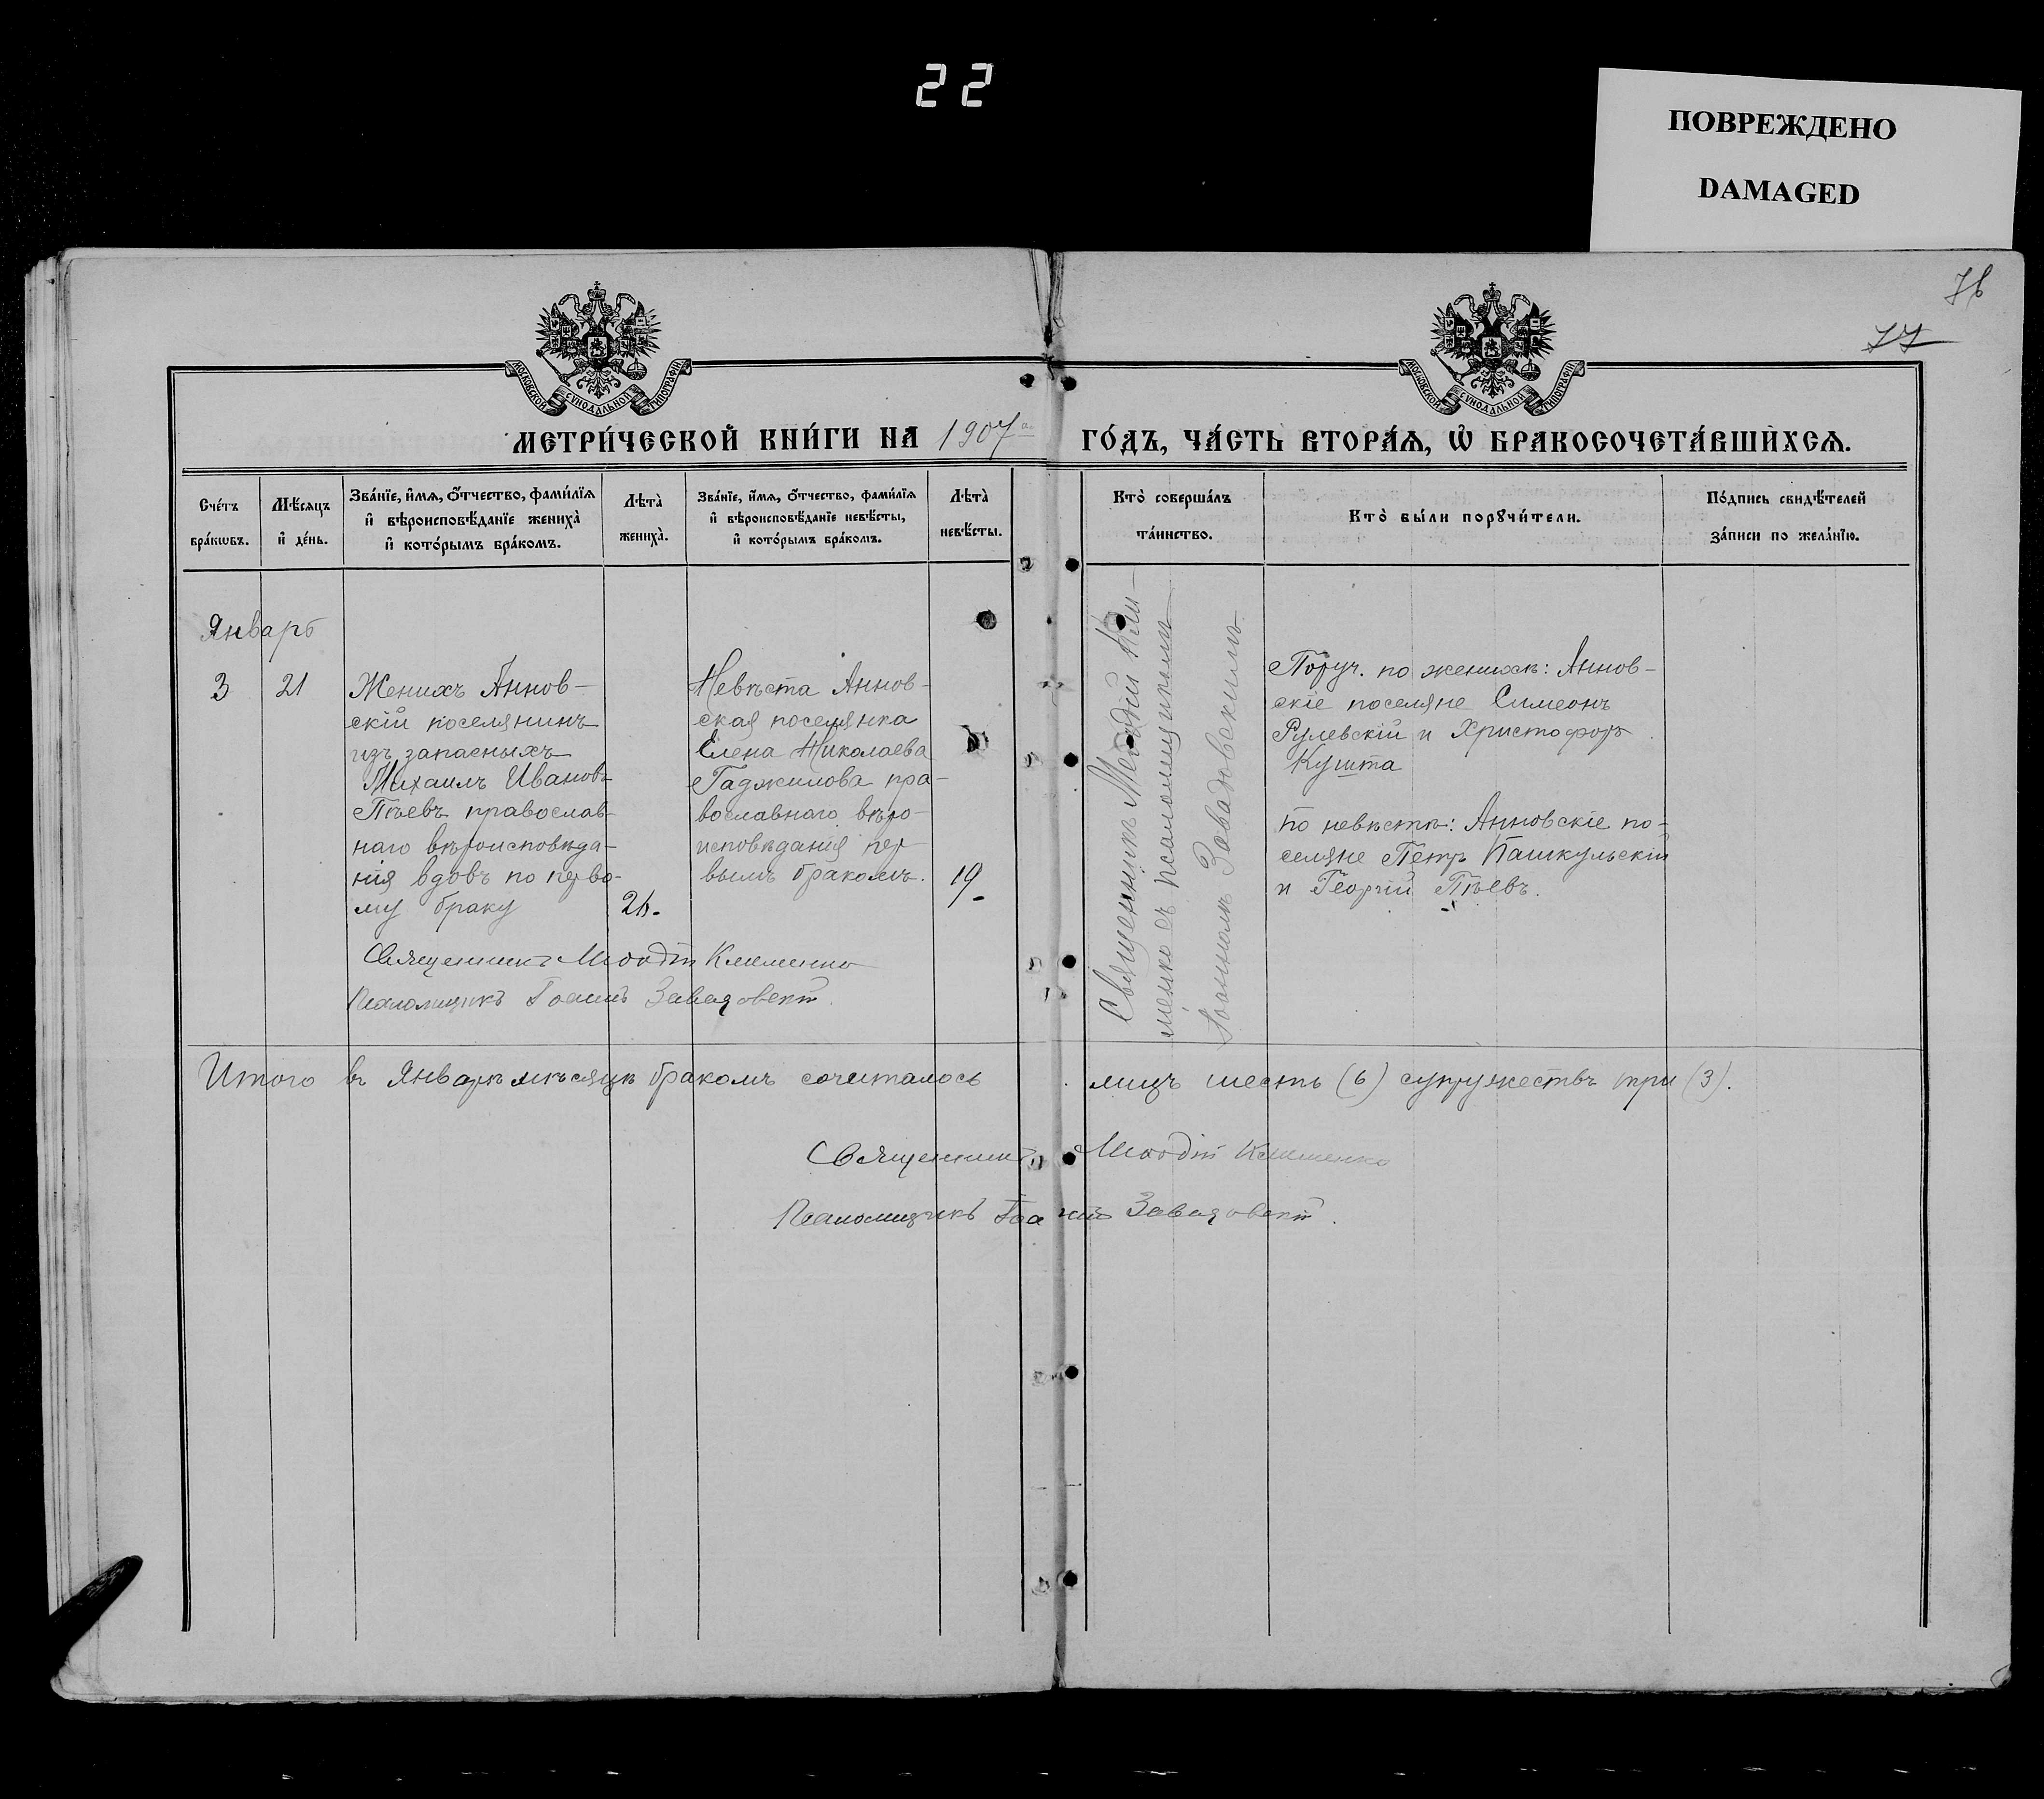 22
ПОВРЕЖДЕНО
DAMAGED
76
77
МОСКОВСКОЙ СУНОДАЛЬНОЙ ТИПОГРАФІИ
МОСКОВСКОЙ СУНОДАЛЬНОЙ ТИПОГРАФІИ
МЕТРИ́ЧЕСКОЙ КНИ́ГИ НА 1907 ГО́ДЪ, ЧА́СТЬ ВТОРА́Ѧ, Ѡ҆ БРАКОСОЧЕТА́ВШИХСѦ.
Сче́тъ бра́кѡвъ.
Мѣ́сѧцъ и҆ де́нь.
Зва́нїе, и҆́мѧ, ѻ҆́тчество, фами́лїѧ и҆ вѣроисповѣ́данїе жениха̀ и҆ кото́рымъ бра́комъ.
Лѣта̀ жениха̀.
Зва́нїе, и҆́мѧ, ѻ҆́тчество, фами́лїѧ и҆ вѣроисповѣ́данїе невѣ́сты, и҆ кото́рымъ бра́комъ.
Лѣта̀ невѣ́сты.
Кто̀ соверша́лъ та́инство.
Кто̀ бы́ли порꙋчи́тели.
По́дпись свидѣ́телей за́писи по жела́нїю.
Январь
3
21
Женихъ Аннов-
скій поселянинъ
изъ запасныхъ
Михаилъ Ивановъ
Пѣевъ православ-
наго вѣроисповѣда-
нія вдовъ по перво-
му браку
26.
Невѣста Аннов-
ская поселянка
Елена Николаева
Гаджилова пра-
вославнаго вѣро-
исповѣданія пер
вымъ бракомъ.
19
Священникъ Меѳодій Кли-
менко съ псаломщикомъ
Іоанномъ Завадовскимъ
Поруч. по женихѣ: Аннов-
скіе поселяне Симеонъ
Рулевскій и Христофоръ
Кушта
по невѣстѣ: Анновскіе по-
селяне Петръ Пашкульскій
и Георгій Пѣевъ.
Священникъ Меѳодій Клименко
Псаломщикъ Іоаннъ Завадовскій.
Итого въ Январѣ мѣсяцѣ бракомъ сочеталось лицъ шесть (6) супружествъ три (3).
Священникъ Меѳодій Клименко
Псаломщикъ Іоаннъ Завадовскій.